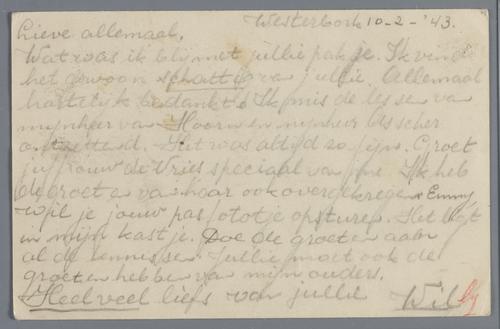 Westerbork 10-2-'43.
Lieve allemaal,
Wat was ik blij met jullie pakje. Ik vind
het gewoon schattig van jullie. Allemaal
hartelijk bedankt! Ik mis de lessen van
mijnheer van Hoorn en mijnheer Asscher
ontzettend. Het was altijd zo fijn. Groet
juffrouw de Vries speciaal van me. Ik heb
de groeten van haar ook overgekregen. Emmy
wil je jouw pasfototje opsturen. Het ligt
in mijn kastje. Doe de groeten aan
al de kennissen. Jullie moet ook de
groeten hebben van mijn ouders.
Heel veel liefs van jullie Wil